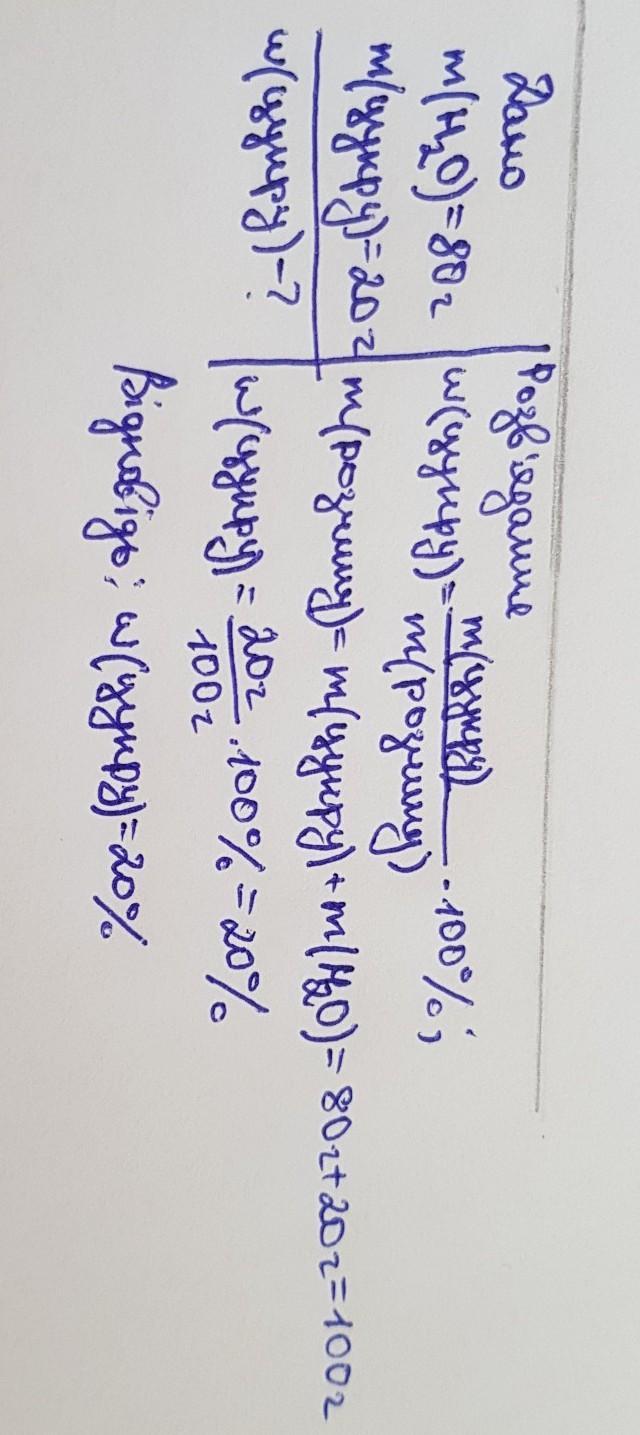 Дано
m(H₂O)=80г
m(цукру)=20г
w(цукру)-?
Розв'язання
w(цукру)=m(цукру)/m(розчину)·100%;
m(розчину)=m(цукру)+m(H₂O)=80г+20г=100г
w(цукру)=20г/100г·100%=20%
Відповідь: w(цукру)=20%